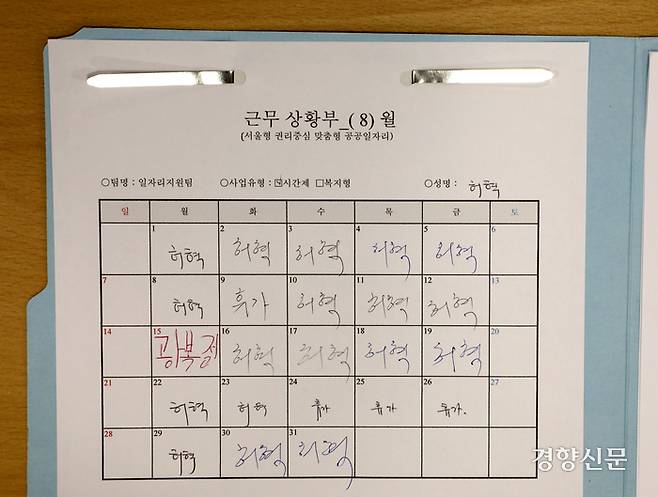 근무 상황부_( 8) 월
(서울형 권리중심 맞춤형 공공일자리)
○팀명 : 일자리지원팀 ○사업유형 : ☑시간제 □복지형 ○성명 : 허혁
일 월 화 수 목 금 토
1 2 3 4 5 6
허혁 허혁 허혁 허혁 허혁
7 8 9 10 11 12 13
허혁 휴가 허혁 허혁 허혁
14 15 16 17 18 19 20
광복절 허혁 허혁 허혁 허혁
21 22 23 24 25 26 27
허혁 허혁 휴가 휴가 휴가.
28 29 30 31
허혁 허혁 허혁
경향신문